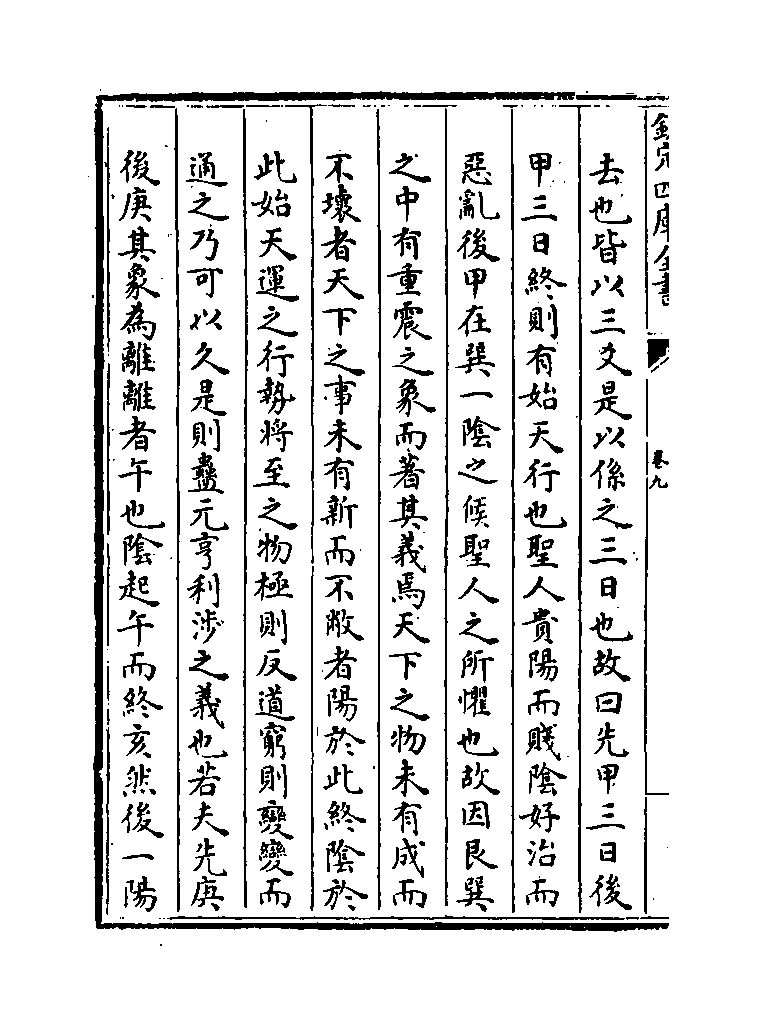 欽定四庫全書
卷九
去也皆以三爻是以係之三日也故曰先甲三日後
甲三日終則有始天行也聖人貴陽而賤陰好治而
惡亂後甲在巽一陰之候聖人之所懼也故因艮巽
之中有重震之象而著其義焉天下之物未有成而
不壞者天下之事未有新而不敝者陽於此終陰於
此始天運之行勢將至之物極則反道窮則變變而
通之乃可以久是則蠱元亨利涉之義也若夫先庚
後庚其象為離離者午也陰起午而終亥然後一陽